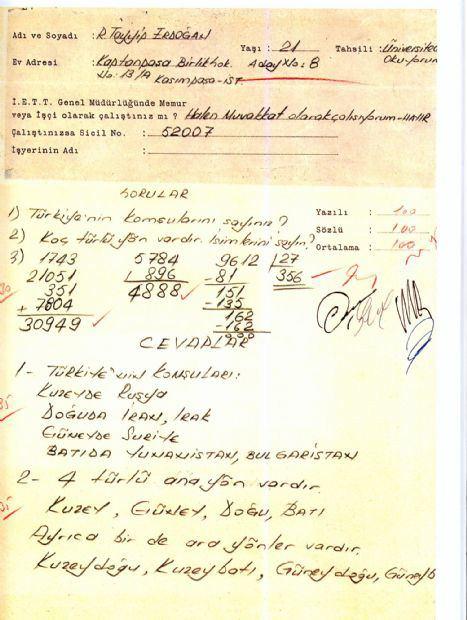 Adı ve Soyadı : R. Tayyip ERDOĞAN
Yaşı : 21 Tahsili : Üniversitede Okuyorum
Ev Adresi : Kaptanpaşa Birlik Sok. Aday No: 8
No: 13/A Kasımpaşa-İST.
İ.E.T.T. Genel Müdürlüğünde Memur
veya İşçi olarak çalıştınız mı ? Halen Muvakkat olarak çalışıyorum-HAYIR
Çalıştınızsa Sicil No. : 52007
İşyerinin Adı :
SORULAR
Yazılı : 100
Sözlü : 100
Ortalama : 100
1) Türkiye'nin komşularını sayınız ?
2) Kaç türlü yön vardır. İsimlerini sayın ?
3) 1743 5784 9612 27
21051 - 896 -81 356
351 4888 151
+ 7804 -135
30949 162
-162
000
CEVAPLAR
1- TÜRKİYE'NİN KOMŞULARI:
KUZEYDE RUSYA
DOĞUDA İRAN, IRAK
GÜNEYDE SURİYE
BATIDA YUNANİSTAN, BULGARİSTAN
2- 4 türlü ana yön vardır.
KUZEY, GÜNEY, DOĞU, BATI
Ayrıca bir de ara yönler vardır.
Kuzeydoğu, Kuzeybatı, Güneydoğu, Güneyb